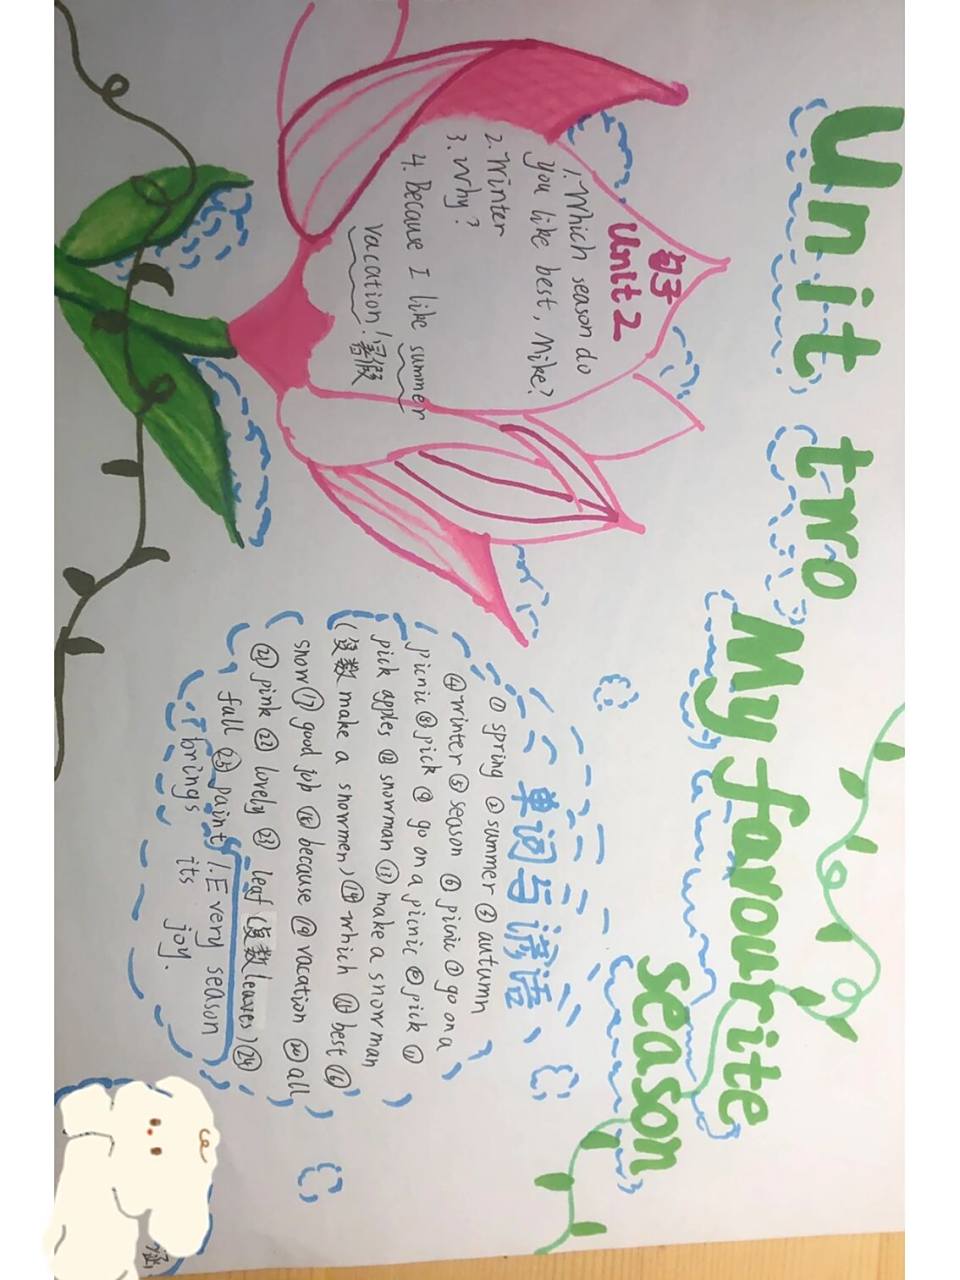 Unit two
My favourite
season
句子
Unit 2
1. Which season do
you like best, Mike?
2. Winter
3. Why?
4. Because I like summer
vacation! 暑假
单词与谚语
① spring ② summer ③ autumn
④ winter ⑤ season ⑥ picnic ⑦ go on a
picnic ⑧ pick ⑨ go on a picnic ⑩ pick ⑪
pick apples ⑫ snowman ⑬ make a snowman
(复数 make a snowmen) ⑭ which ⑮ best ⑯
snow ⑰ good job ⑱ because ⑲ vacation ⑳ all
㉑ pink ㉒ lovely ㉓ leaf (复数 leaves) ㉔
fall ㉕ paint 1. Every season
brings its joy.